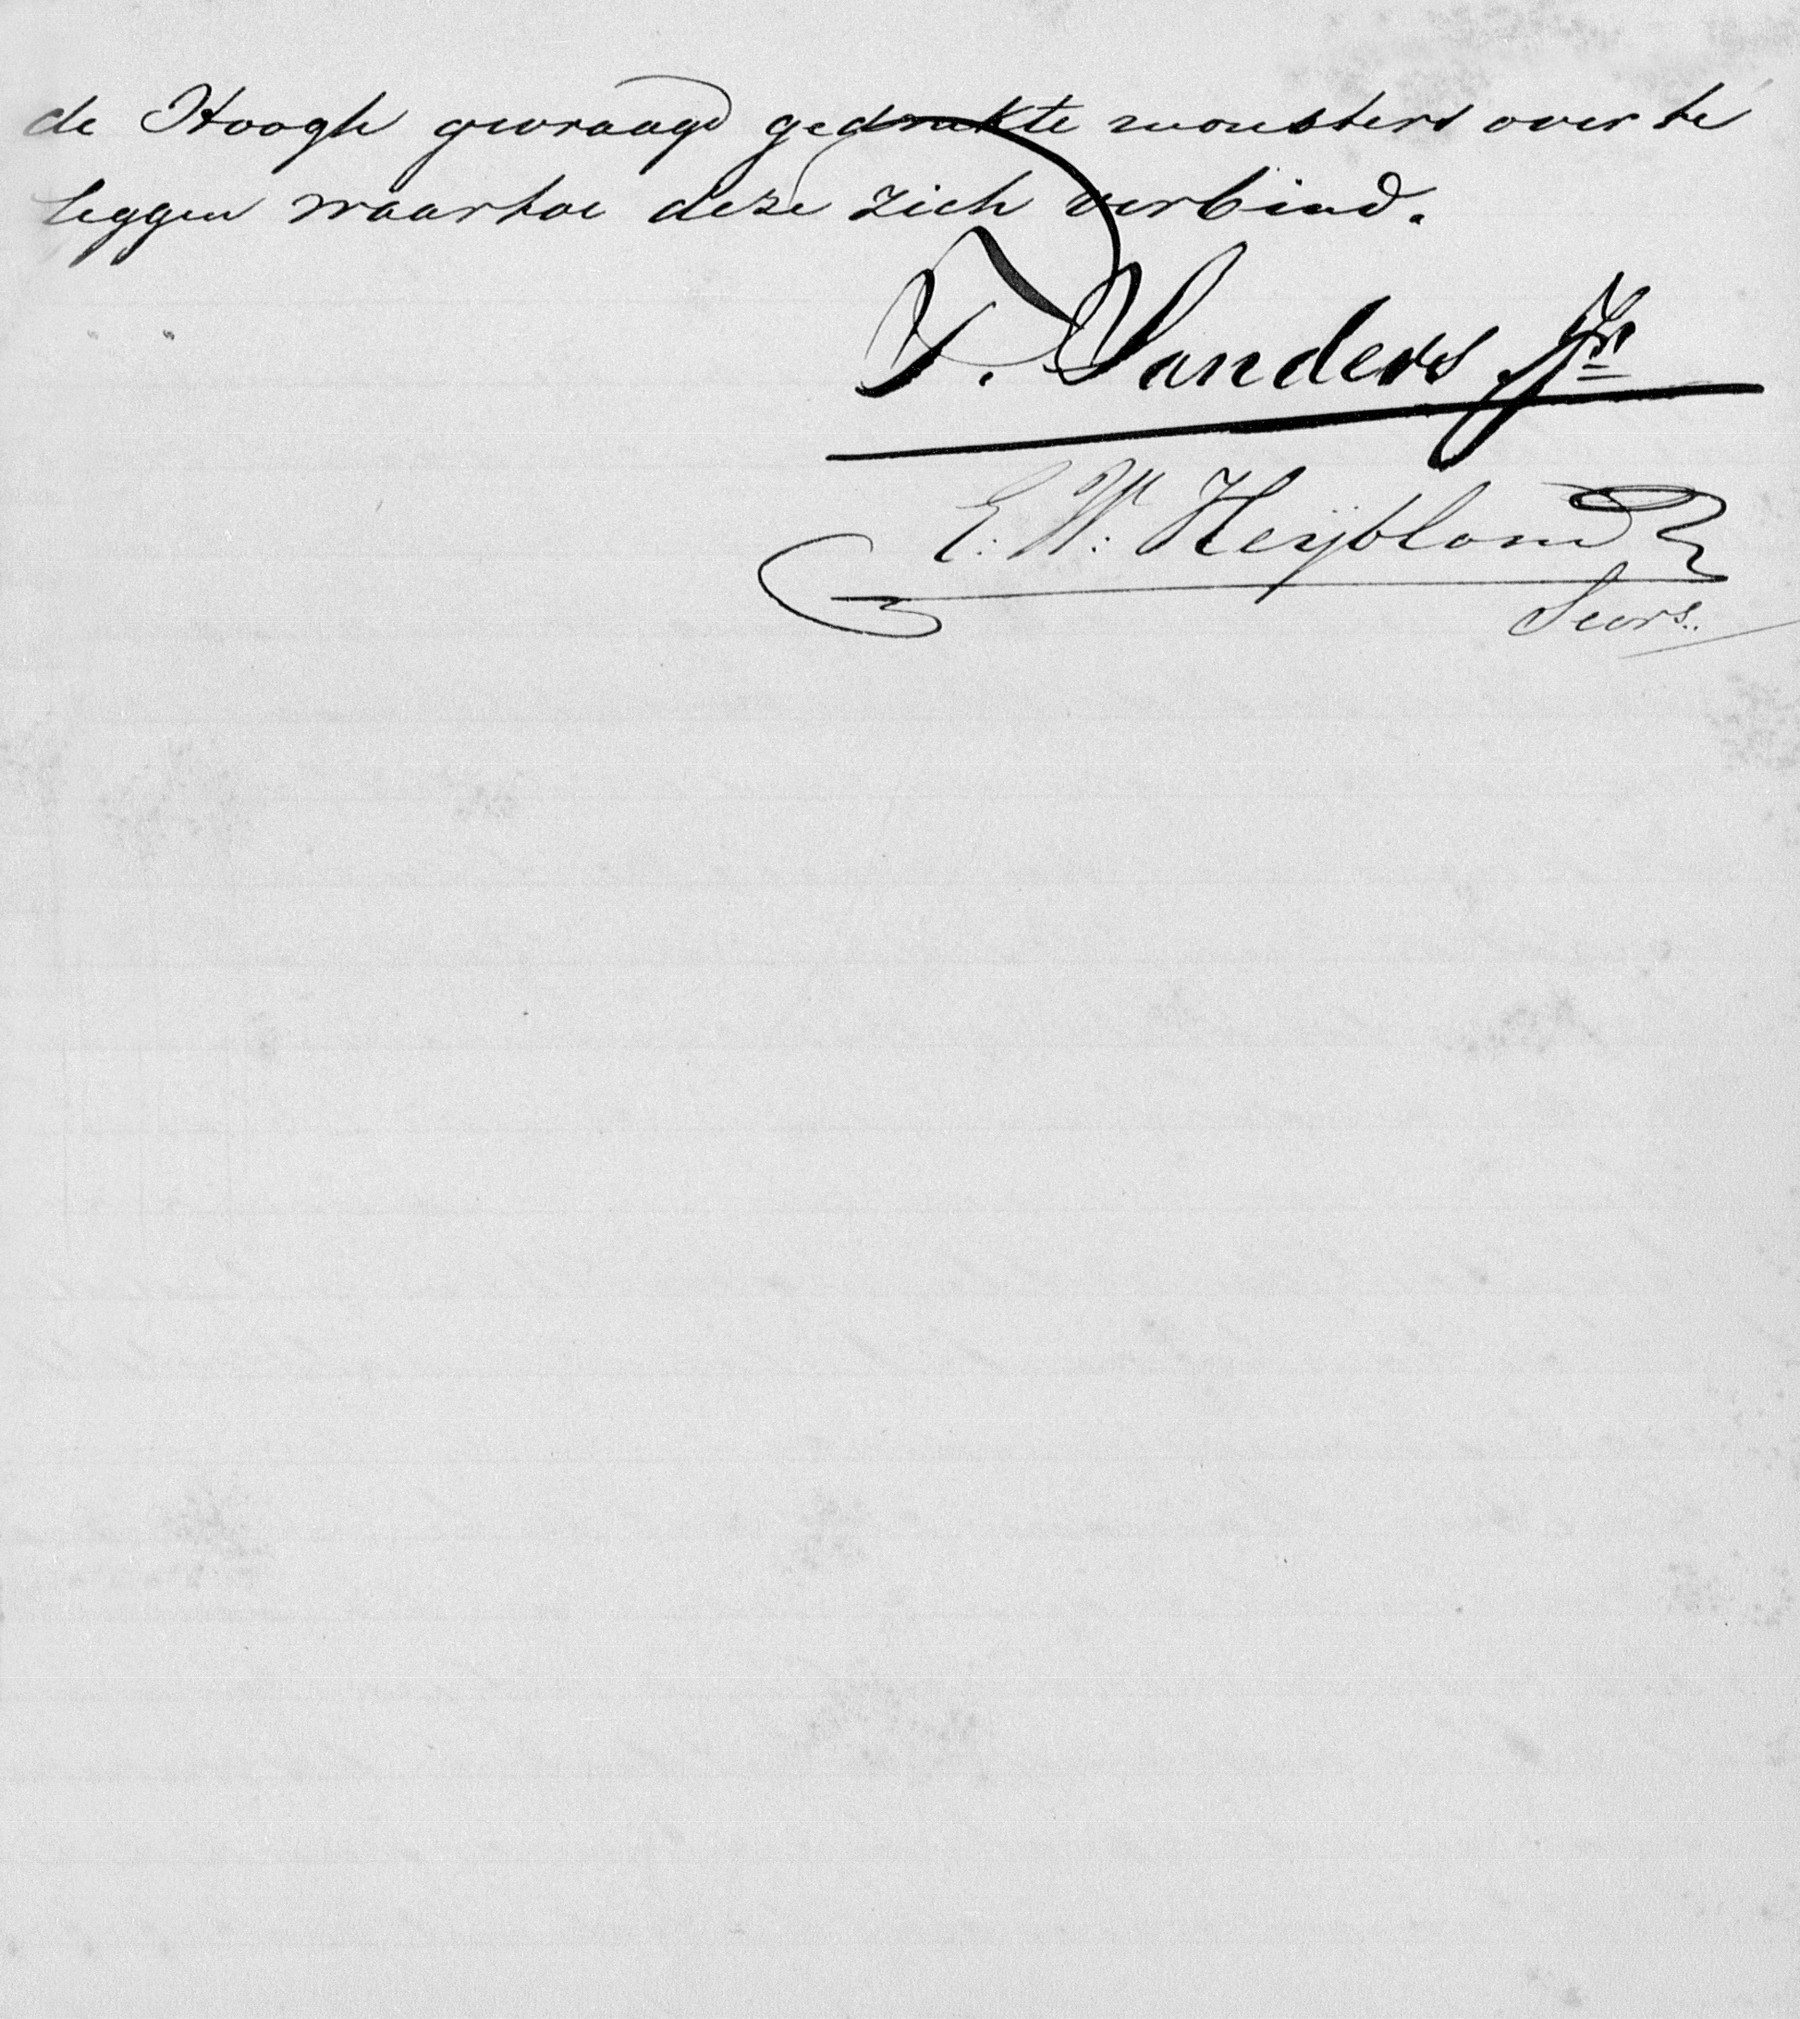 de Hoogh gevraagd gedrukte monsters over te
leggen waartoe deze zich verbind.
T. Sanders Jr
E: W: Heijblom
Secrs.